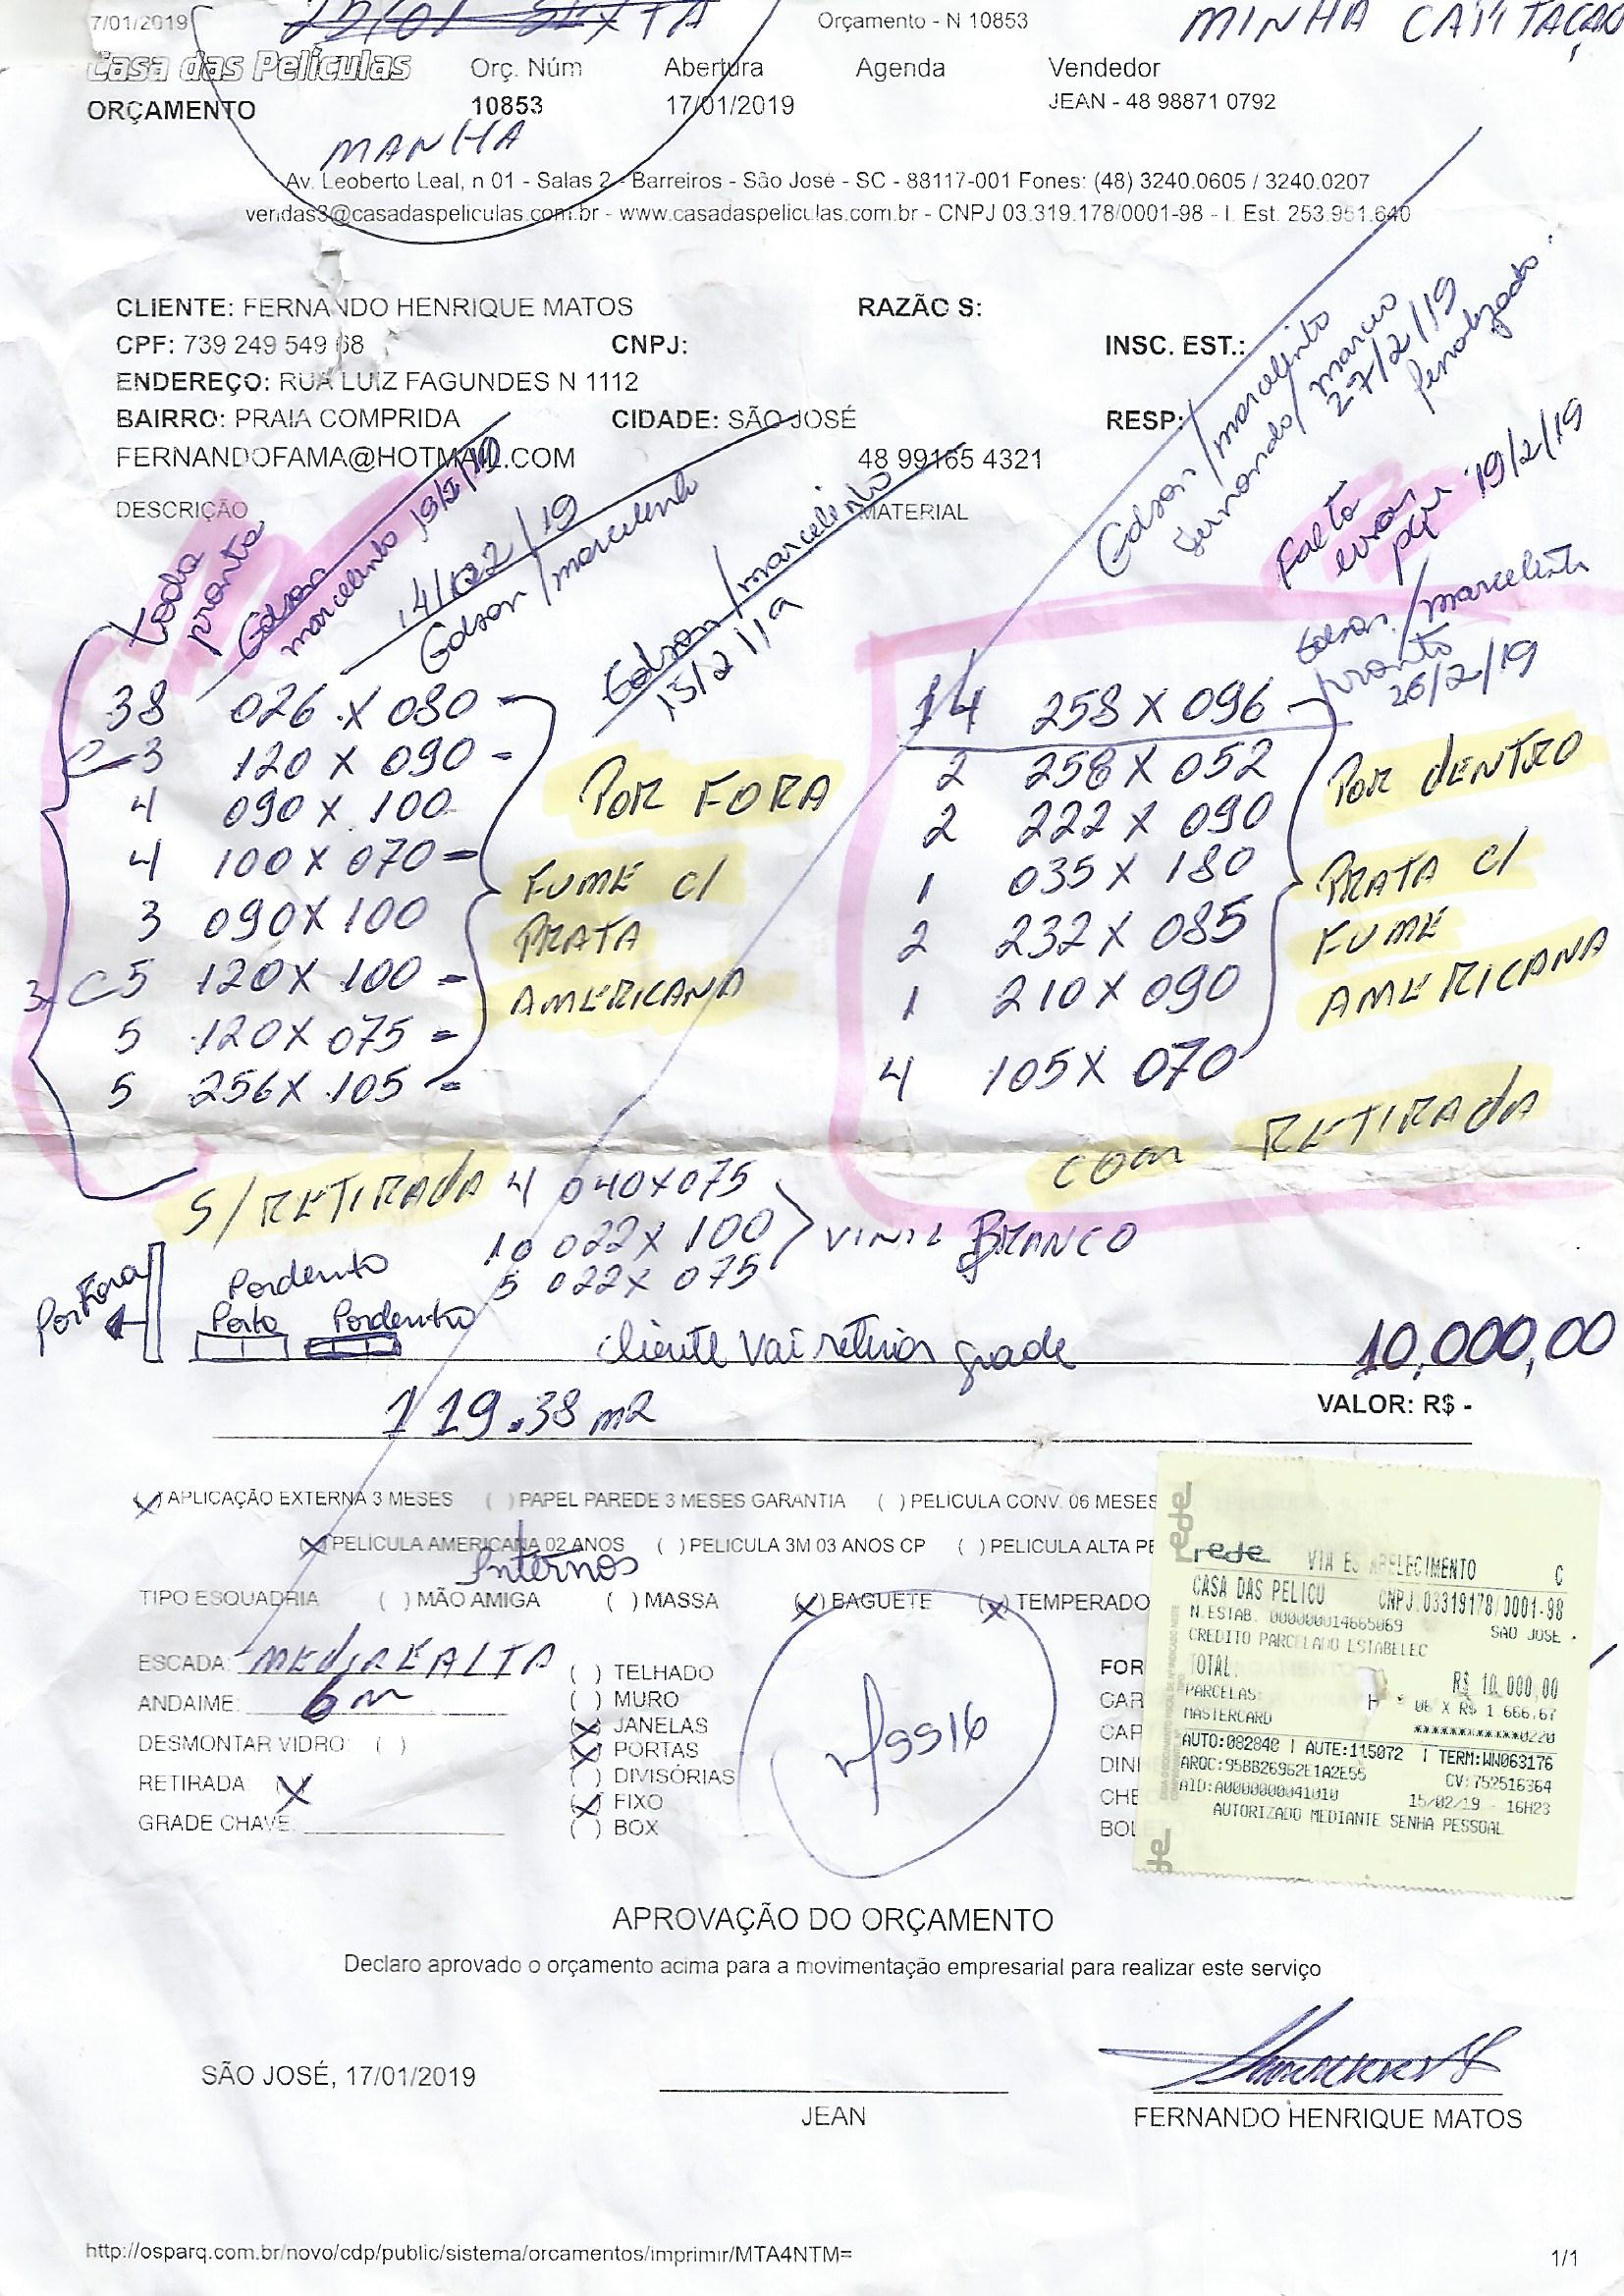 7/01/2019
25/01 SEXTA
Orçamento - N 10853
MINHA CAPTAÇÃO
Casa das Películas
Orç. Núm Abertura Agenda Vendedor
ORÇAMENTO 10853 17/01/2019 JEAN - 48 98871 0792
MANHA
Av. Leoberto Leal, n 01 - Salas 2 - Barreiros - São José - SC - 88117-001 Fones: (48) 3240.0605 / 3240.0207
vendas3@casadaspeliculas.com.br - www.casadaspeliculas.com.br - CNPJ 03.319.178/0001-98 - I. Est. 253.951.640
CLIENTE: FERNANDO HENRIQUE MATOS RAZÃO S:
CPF: 739 249 549 68 CNPJ: INSC. EST.:
ENDEREÇO: RUA LUIZ FAGUNDES N 1112
BAIRRO: PRAIA COMPRIDA CIDADE: SÃO JOSÉ RESP:
FERNANDOFAMA@HOTMAIL.COM 48 99165 4321
DESCRIÇÃO MATERIAL
Toda pronta
Edson marcelinho
Edson / marcelinho
Edson / marcelinho
15/2/19
Edson / marcelinho
Fernando / marcio
27/2/19
Falta
19/2/19
Edson / marcelinho
pronto
26/2/19
38 026 X 080
C-3 120 X 090
4 090 X 100
4 100 X 070
3 090 X 100
C5 120 X 100
5 120 X 075
5 256 X 105
POR FORA
FUME C/
PRATA
AMERICANA
S/RETIRADA
14 258 X 096
2 258 X 052
2 222 X 090
1 035 X 180
2 232 X 085
1 210 X 090
4 105 X 070
POR dENTRO
PRATA C/
FUME
AMERICANA
COM RETIRADA
4 040 X 075
10 022 X 100
5 022 X 075
VINIL BRANCO
Por Fora
Pordentro
Porta Pordentro
Cliente vai retirar grade
10,000,00
119.38 m2
VALOR: R$ -
(X) APLICAÇÃO EXTERNA 3 MESES ( ) PAPEL PAREDE 3 MESES GARANTIA ( ) PELICULA CONV. 06 MESES
(X) PELICULA AMERICANA 02 ANOS ( ) PELICULA 3M 03 ANOS CP ( ) PELICULA ALTA PE
Internos
TIPO ESQUADRIA ( ) MÃO AMIGA ( ) MASSA (X) BAGUETE (X) TEMPERADO
ESCADA: MEdIA E ALTA
ANDAIME: 6m
DESMONTAR VIDRO: ( )
RETIRADA (X)
GRADE CHAVE:
( ) TELHADO
( ) MURO
(X) JANELAS
(X) PORTAS
( ) DIVISÓRIAS
(X) FIXO
( ) BOX
5516
FOR
CAR
CAP
DINH
CHE
BOL
rede
rede VIA ESTABELECIMENTO C
CASA DAS PELICU CNPJ:03319178/0001-98
N.ESTAB. 000000014665069 SAO JOSE
CREDITO PARCELADO ESTABELEC
TOTAL: R$ 10.000,00
PARCELAS: 06 X R$ 1.666,67
MASTERCARD ************0220
AUTO:082848 | AUTE:115072 | TERM:WW063176
ARQC:95BB26962E1A2E55 CV:752516364
AID:A0000000041010 15/02/19 - 16H23
AUTORIZADO MEDIANTE SENHA PESSOAL
APROVAÇÃO DO ORÇAMENTO
Declaro aprovado o orçamento acima para a movimentação empresarial para realizar este serviço
SÃO JOSÉ, 17/01/2019
JEAN FERNANDO HENRIQUE MATOS
http://osparq.com.br/novo/cdp/public/sistema/orcamentos/imprimir/MTA4NTM= 1/1